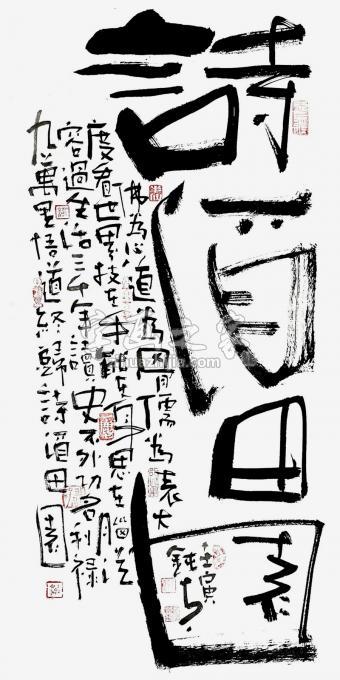 詩酒田園
壬寅
佛為心道為骨儒為表大
度看世界技在手能在身思在腦從
容過生活三千年讀史不外功名利祿
九萬里悟道終歸詩酒田園